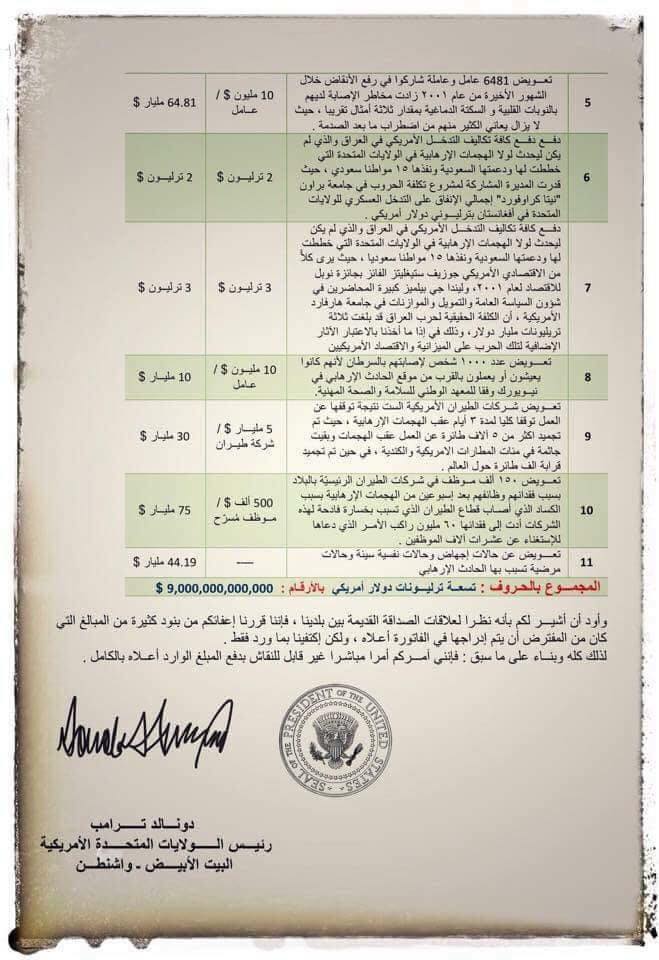 5
تعـــويض 6481 عامل وعاملة شاركوا في رفع الأنقاض خلال
الشهور الأخيرة من عام ٢٠٠١ زادت مخاطر الإصابة لديهم
بالنوبات القلبية و السكتة الدماغية بمقدار ثلاثة أمثال تقريبا ، حيث
لا يزال يعاني الكثير منهم من اضطراب ما بعد الصدمة .
10 مليون $ /
عـــامل
64.81 مليار $
6
دفــع دفـع كافة تكاليف التدخـل الأمريكي في العراق والذي لم
يكن ليحدث لولا الهجمات الإرهابية في الولايات المتحدة التي
خططت لها ودعمتها السعودية ونفذها ١٥ مواطنا سعودي ، حيث
قدرت المديرة المشاركة لمشروع تكلفة الحروب في جامعة براون
"نيتا كراوفورد" إجمالي الإنفاق على التدخل العسكري للولايات
المتحدة في أفغانستان بتريليوني دولار أمريكي .
2 ترليـــون $
2 ترليـــون $
7
دفــع كافة تكاليف التدخـل الأمريكي في العراق والذي لم يكن
ليحدث لولا الهجمات الإرهابية في الولايات المتحدة التي خططت
لها ودعمتها السعودية ونفذها ١٥ مواطنا سعوديا ، حيث يرى كلاً
من الاقتصادي الأمريكي جوزيف ستيغليتز الفائز بجائزة نوبل
للاقتصاد لعام ٢٠٠١، وليندا جي بيلميز كبيرة المحاضرين في
شؤون السياسة العامة والتمويل والموازنات في جامعة هارفارد
الأمريكية ، أن الكلفة الحقيقية لحرب العراق قد بلغت ثلاثة
تريليونات مليار دولار، وذلك في إذا ما أخذنا بالاعتبار الآثار
الإضافية لتلك الحرب على الميزانية والاقتصاد الأمريكيين
3 ترليـــون $
3 ترليـــون $
8
تعـــويض عدد ١٠٠٠ شخص لإصابتهم بالسرطان لأنهم كانوا
يعيشون أو يعملون بالقرب من موقع الحادث الإرهابي في
نيـــويورك وفقا للمعهد الوطني للسلامة والصحة المهنية.
10 مليـون $ /
عـــامل
10 مليـــار $
9
تعـــويض شركـات الطيران الأمريكية الست نتيجة توقفها عن
العمل توقفا كليا لمدة ٣ أيام عقب الهجمات الإرهابية ، حيث تم
تجميد اكثر من ٥ آلاف طائرة عن العمل عقب الهجمات وبقيت
جاثمة في مئات المطارات الامريكية والكندية ، في حين تم تجميد
قرابة الف طائرة حول العالم .
5 مليـــار $ /
شركة طيـران
30 مليار $
10
تعـــويض ١٥٠ ألف مـوظف في شركات الطيران الرئيسيّة بالبلاد
بسبب فقدانهم وظائفهم بعد إسبوعين من الهجمات الإرهابية بسبب
الكساد الذي أصاب قطاع الطيران الذي تسبب بخسارة فادحة لهذه
الشركات أدت إلى فقدانها ٦٠ مليون راكب الأمـر الذي دعاها
للإستغناء عن عشرات آلاف الموظفين .
500 ألف $ /
مـوظف مُسرّح
75 مليـار $
11
تعـــويض عن حالات إجهاض وحالات نفسية سيئة وحالات
مرضية تسبب بها الحادث الإرهابي
----
44.19 مليار $
المجمـــوع بالحروف : تسعــة ترليـــونات دولار أمريكي بالأرقـام : 9,000,000,000,000 $
وأود أن أشيـــر لكم بأنه نظرا لعلاقات الصداقة القديمة بين بلدينا ، فإننا قررنا إعفائكم من بنود كثيرة من المبالغ التي
كان من المفترض أن يتم إدراجها في الفاتورة أعـلاه ، ولكن إكتفينا بما ورد فقط .
لذلك كله وبناء على ما سبق : فإنني آمـركم أمرا مباشرا غير قابل للنقاش بدفع المبلغ الوارد أعـلاه بالكامل .
SEAL OF THE PRESIDENT OF THE UNITED STATES
دونـــالد تـــــرامب
رئيـــس الـــولايات المتحـــدة الأمريكية
البيت الأبيــض ـ واشنطـــن